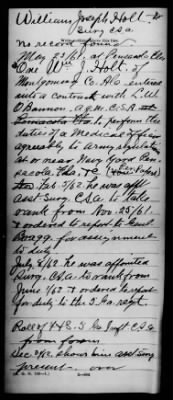 William Joseph Holt
Surg CSA
no record found
May 23/61, at Pensacola Fla
One Wm. J. Holt, of
Montgomery Co. Ala. enters
into a contract with L. W.
O'Bannon, A.Q.M. C.S.A. at
Pensacola Fla. to perform the
duties of a Medical Officer
agreeably to Army regulations
at or near Navy Yard Pen-
sacola Fla.
Feb 5/62 he was appt
Asst Surg. C.S.A. to take
rank from Nov. 25/61.
& ordered to report to Genl
Bragg for assignment
to duty
July 2/62 he was appointed
Surg. C.S.A. to rank from
June 7/62 & ordered to report
for duty to the 5 Ga regt.
Roll of F&S. 5 Ga Inft C.S.A.
from
Dec 31/62, shows him asst surg
present. over